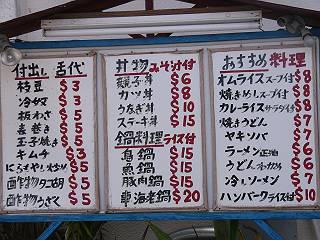 付出し 舌代
枝豆 $3
冷奴 $3
板わさ $5
う巻き $5
玉子焼き $5
キムチ $3
にらもやし炒め $5
酢物タコ胡 $5
酢物うざく $5
丼物 みそ汁付
親子丼 $6
カツ丼 $8
うなぎ丼 $10
ステーキ丼 $15
鍋料理 ライス付
鳥鍋 $15
魚鍋 $15
豚肉鍋 $15
車海老鍋 $20
おすすめ料理
オムライス スープ付 $8
焼きめし スープ付 $8
カレーライス サラダ付 $9
焼きうどん $7
ヤキソバ $7
ラーメン $8
うどん $6
冷しソーメン $7
ハンバーグ ライス付 $10